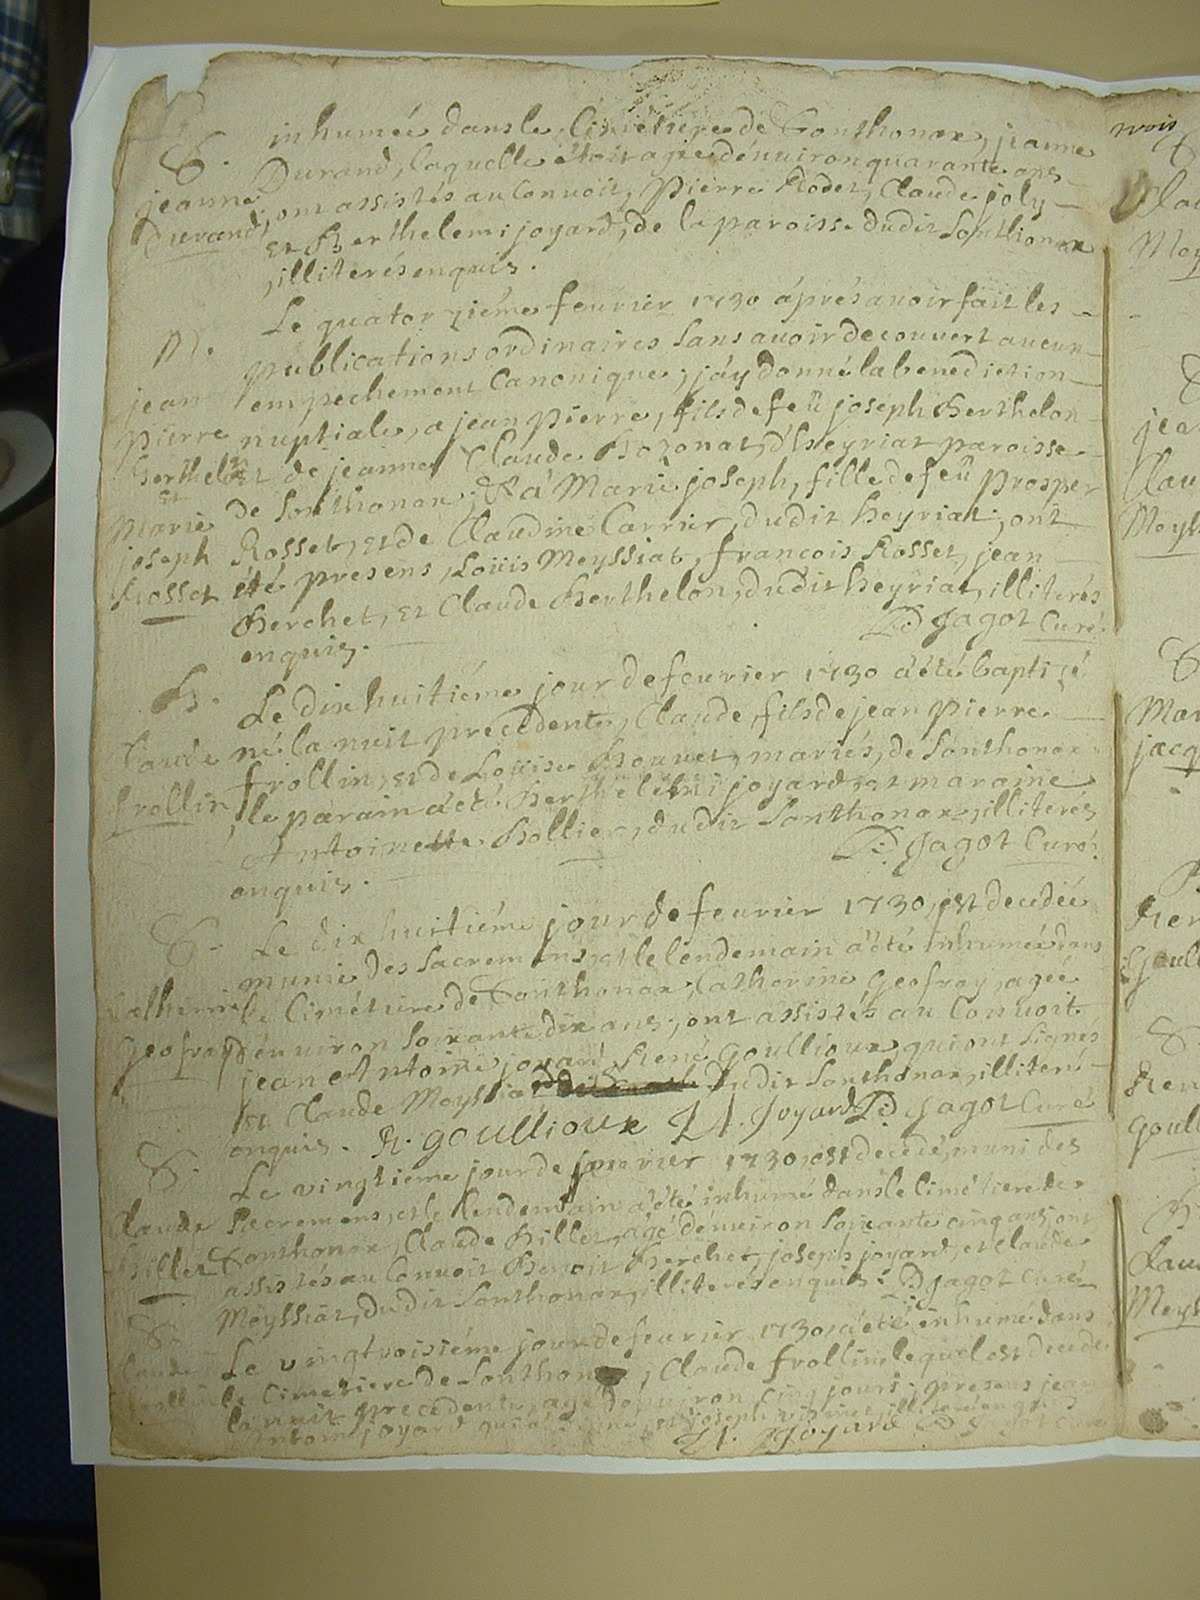 inhumée dans le Cimétiere de Sonthonax, jeanne
S. Durand, laquelle étoit agée d'énuiron quarante ans
jeanne ont assistés au Conuoit, Pierre Rodet, Claude joly
Durand et Berthelemi joyard, de la paroisse dudit Sonthonax
illiterés enquis.
Le quatorziéme feurier 1730 áprés auoir fait les
M. publications ordinaires sans auoir decouuert aucun
jean empechement Canonique, j'áy donné la benediction
pierre nuptiale, a jean pierre, fils de feû joseph Berthelon
Berthelon et de jeanne Claude Bozonat, d'heyriat paroisse
et
Marie de Sonthonax, & á Marie joseph, fille de feû prosper
joseph Rosset, et de Claudine Carrier, dudit heyriat, ont
Rosset été presens, Loüis Meyssiat, francois Rosset, jean
Berchet, et Claude Berthelon, dudit heyriat, illiterés
enquis. D Jagot Curé.
B. Le dix huitiéme jour de feurier 1730 a été bapti zé
Claude né la nuit precedente, Claude, fils de jean pierre
frollin frollin, et de Loüise Bouuet, mariés, de Sonthonax
le parain a été Berthelemi joyard, et maraine
Antoinette Bollier, dudit Sonthonax, illiterés
enquis. D Jagot Curé.
S. Le dix huitiéme jour de feurier 1730, est decedée
munie des sacremens, et le lendemain a été inhumée dans
Catherine le Cimétiere de Sonthonax, Catherine Geofray, agée
Geofray d'énuiron soixante dix ans, ont assistés au Conuoit
jean Antoine joyard, René Goullioux qui ont signés
et Claude Meyssiat dudit Sonthonax, illiteré
enquis. R. goullioux I A. Joyard D Jagot Curé
S. Le vingtiéme jour de feurier 1730, est decedé, muni des
Claude sacremens, et le lendemain a été inhumé dans le Cimétiere de
Billet Sonthonax, Claude Billet, agé d'énuiron soixante cinq ans, ont
assistés au Conuoit Benoit Berchet, joseph joyard, et Claude
Meyssiat, dudit Sonthonax, illiterés enquis. D Jagot Curé
S. Le vingt troisiéme jour de feurier 1730, a été inhumé dans
Claude le Cimetiere de Sonthonax, Claude frollin lequel est decedé
frollin la nuit precedente, agé d'enuiron cinq jours, presens jean
antoine joyard qui a signé, et joseph illiteré enquis
I A. Joyard D Jagot Curé
trois
S
Clau
Mey
jea
Clau
Meyss
S
Mar
jacq
Ren
Goull
S.
Ren
Goull
Clau
Meyss